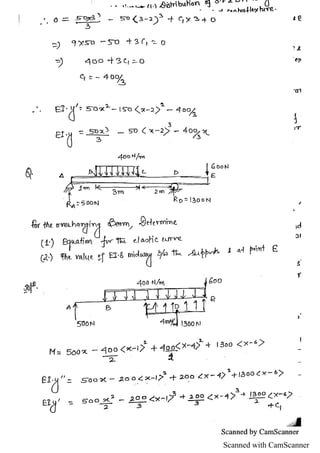 ∴ 0 = 50x3³/3 - 50 (3-2)³ + C₁ x 3 + 0
=) 9x50 - 50 + 3C₁ = 0
=) 400 + 3C₁ = 0
C₁ = - 400/3
∴ EI·y' = 50x² - 150 <x-2>² - 400/3
EI·y = 50x³/3 - 50 <x-2>³ - 400/3 x
Q.
400 N/m
600N
A B C D E
1m 3m 2m
RA = 500N RD = 1300N
for the overhanging Beam, Determine
(1) Equation for the elastic curve
(2) The value of EI·δ midway b/w the supports & at point E
400 N/m 600
A B D
500N 400N/m 1300N
M = 500x - 400/2 <x-1>² + 400/2 <x-4>² + 1300 <x-6>
EI·y'' = 500x - 200 <x-1>² + 200 <x-4>² + 1300 <x-6>
EIy' = 500 x²/2 - 200/3 <x-1>³ + 200/3 <x-4>³ + 1300/2 <x-6>
+C₁
Scanned by CamScanner
Scanned with CamScanner